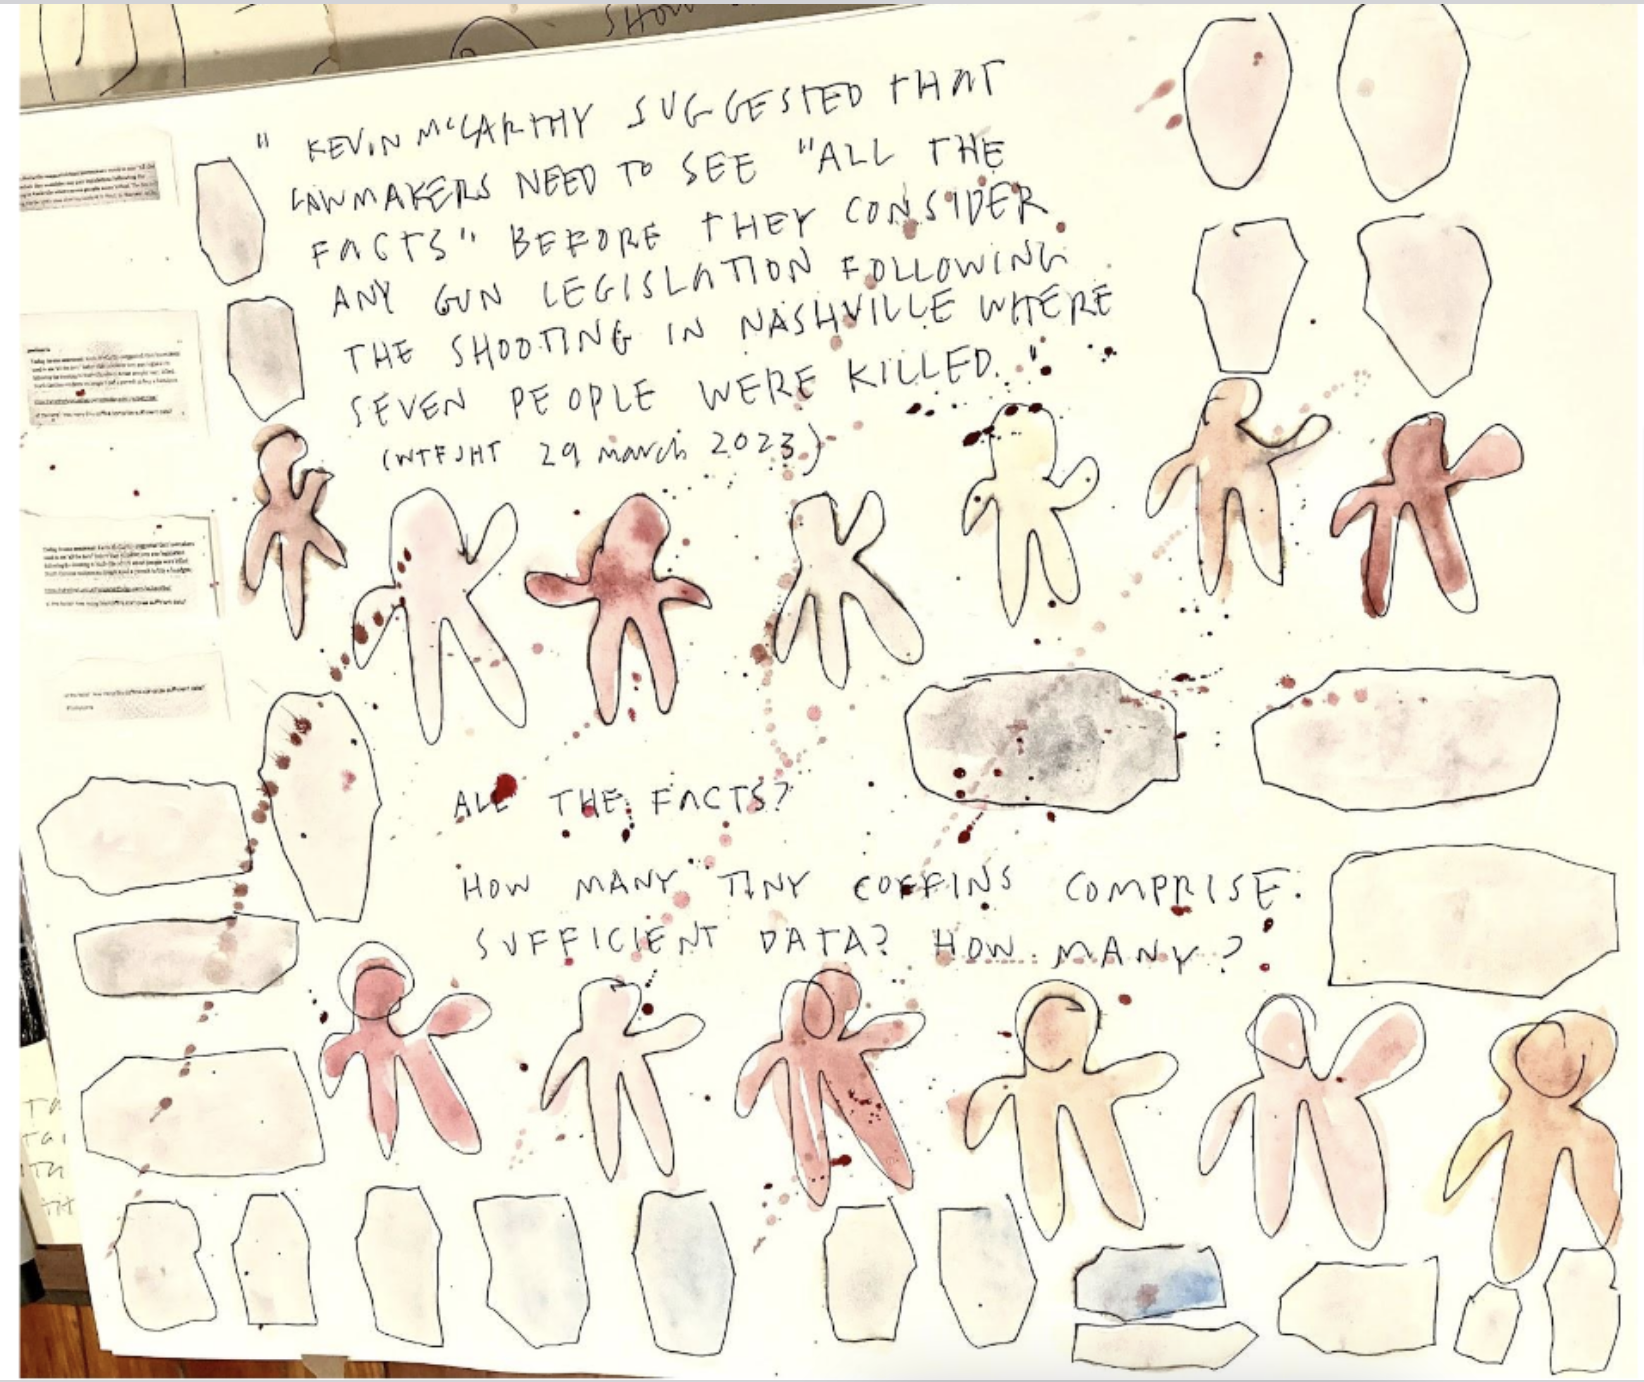 SHOW
" KEVIN McCARTHY SUGGESTED THAT
LAWMAKERS NEED TO SEE "ALL THE
FACTS" BEFORE THEY CONSIDER
ANY GUN LEGISLATION FOLLOWING
THE SHOOTING IN NASHVILLE WHERE
SEVEN PEOPLE WERE KILLED."
(WTFJHT 29 march 2023)
ALL THE FACTS?
HOW MANY TINY COFFINS COMPRISE
SUFFICIENT DATA? HOW MANY?